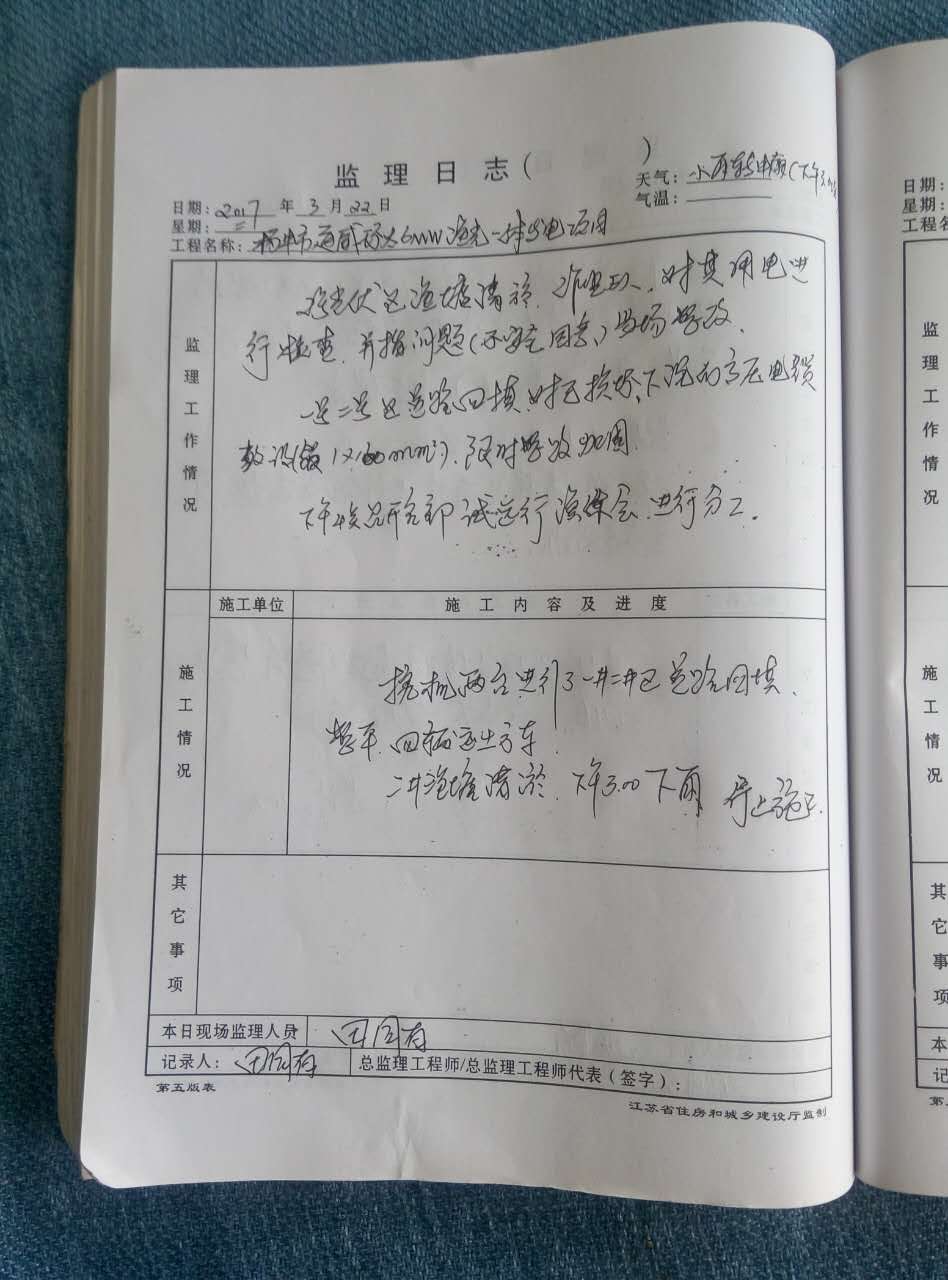 监理日志（ ）
天气：小雨转中雨（下午3.00
气温：
日期：2017年3月22日
星期：三
工程名称：扬中市通威 6MW渔光一体发电项目
监理工作情况
光伏区渔塘清淤 对其用电进
行检查，并指问题（不安全因素）当场整改。
一号二号区道路回填，对已损坏、下沉的高压电缆
敷设 限时整改 
下午 试运行 会，进行分工。
施工单位 施工内容及进度
施工情况
挖机两台进行了一井二井区道路回填，
整平，四辆运土方车
二井渔塘清淤，下午3.00下雨 停止施工.
其它事项
本日现场监理人员 田同有
记录人：田同有 总监理工程师/总监理工程师代表（签字）：
第五版表
江苏省住房和城乡建设厅监制
日期：
星期：
工程名
监理工作情况
施工情况
其它事项
本
记
第